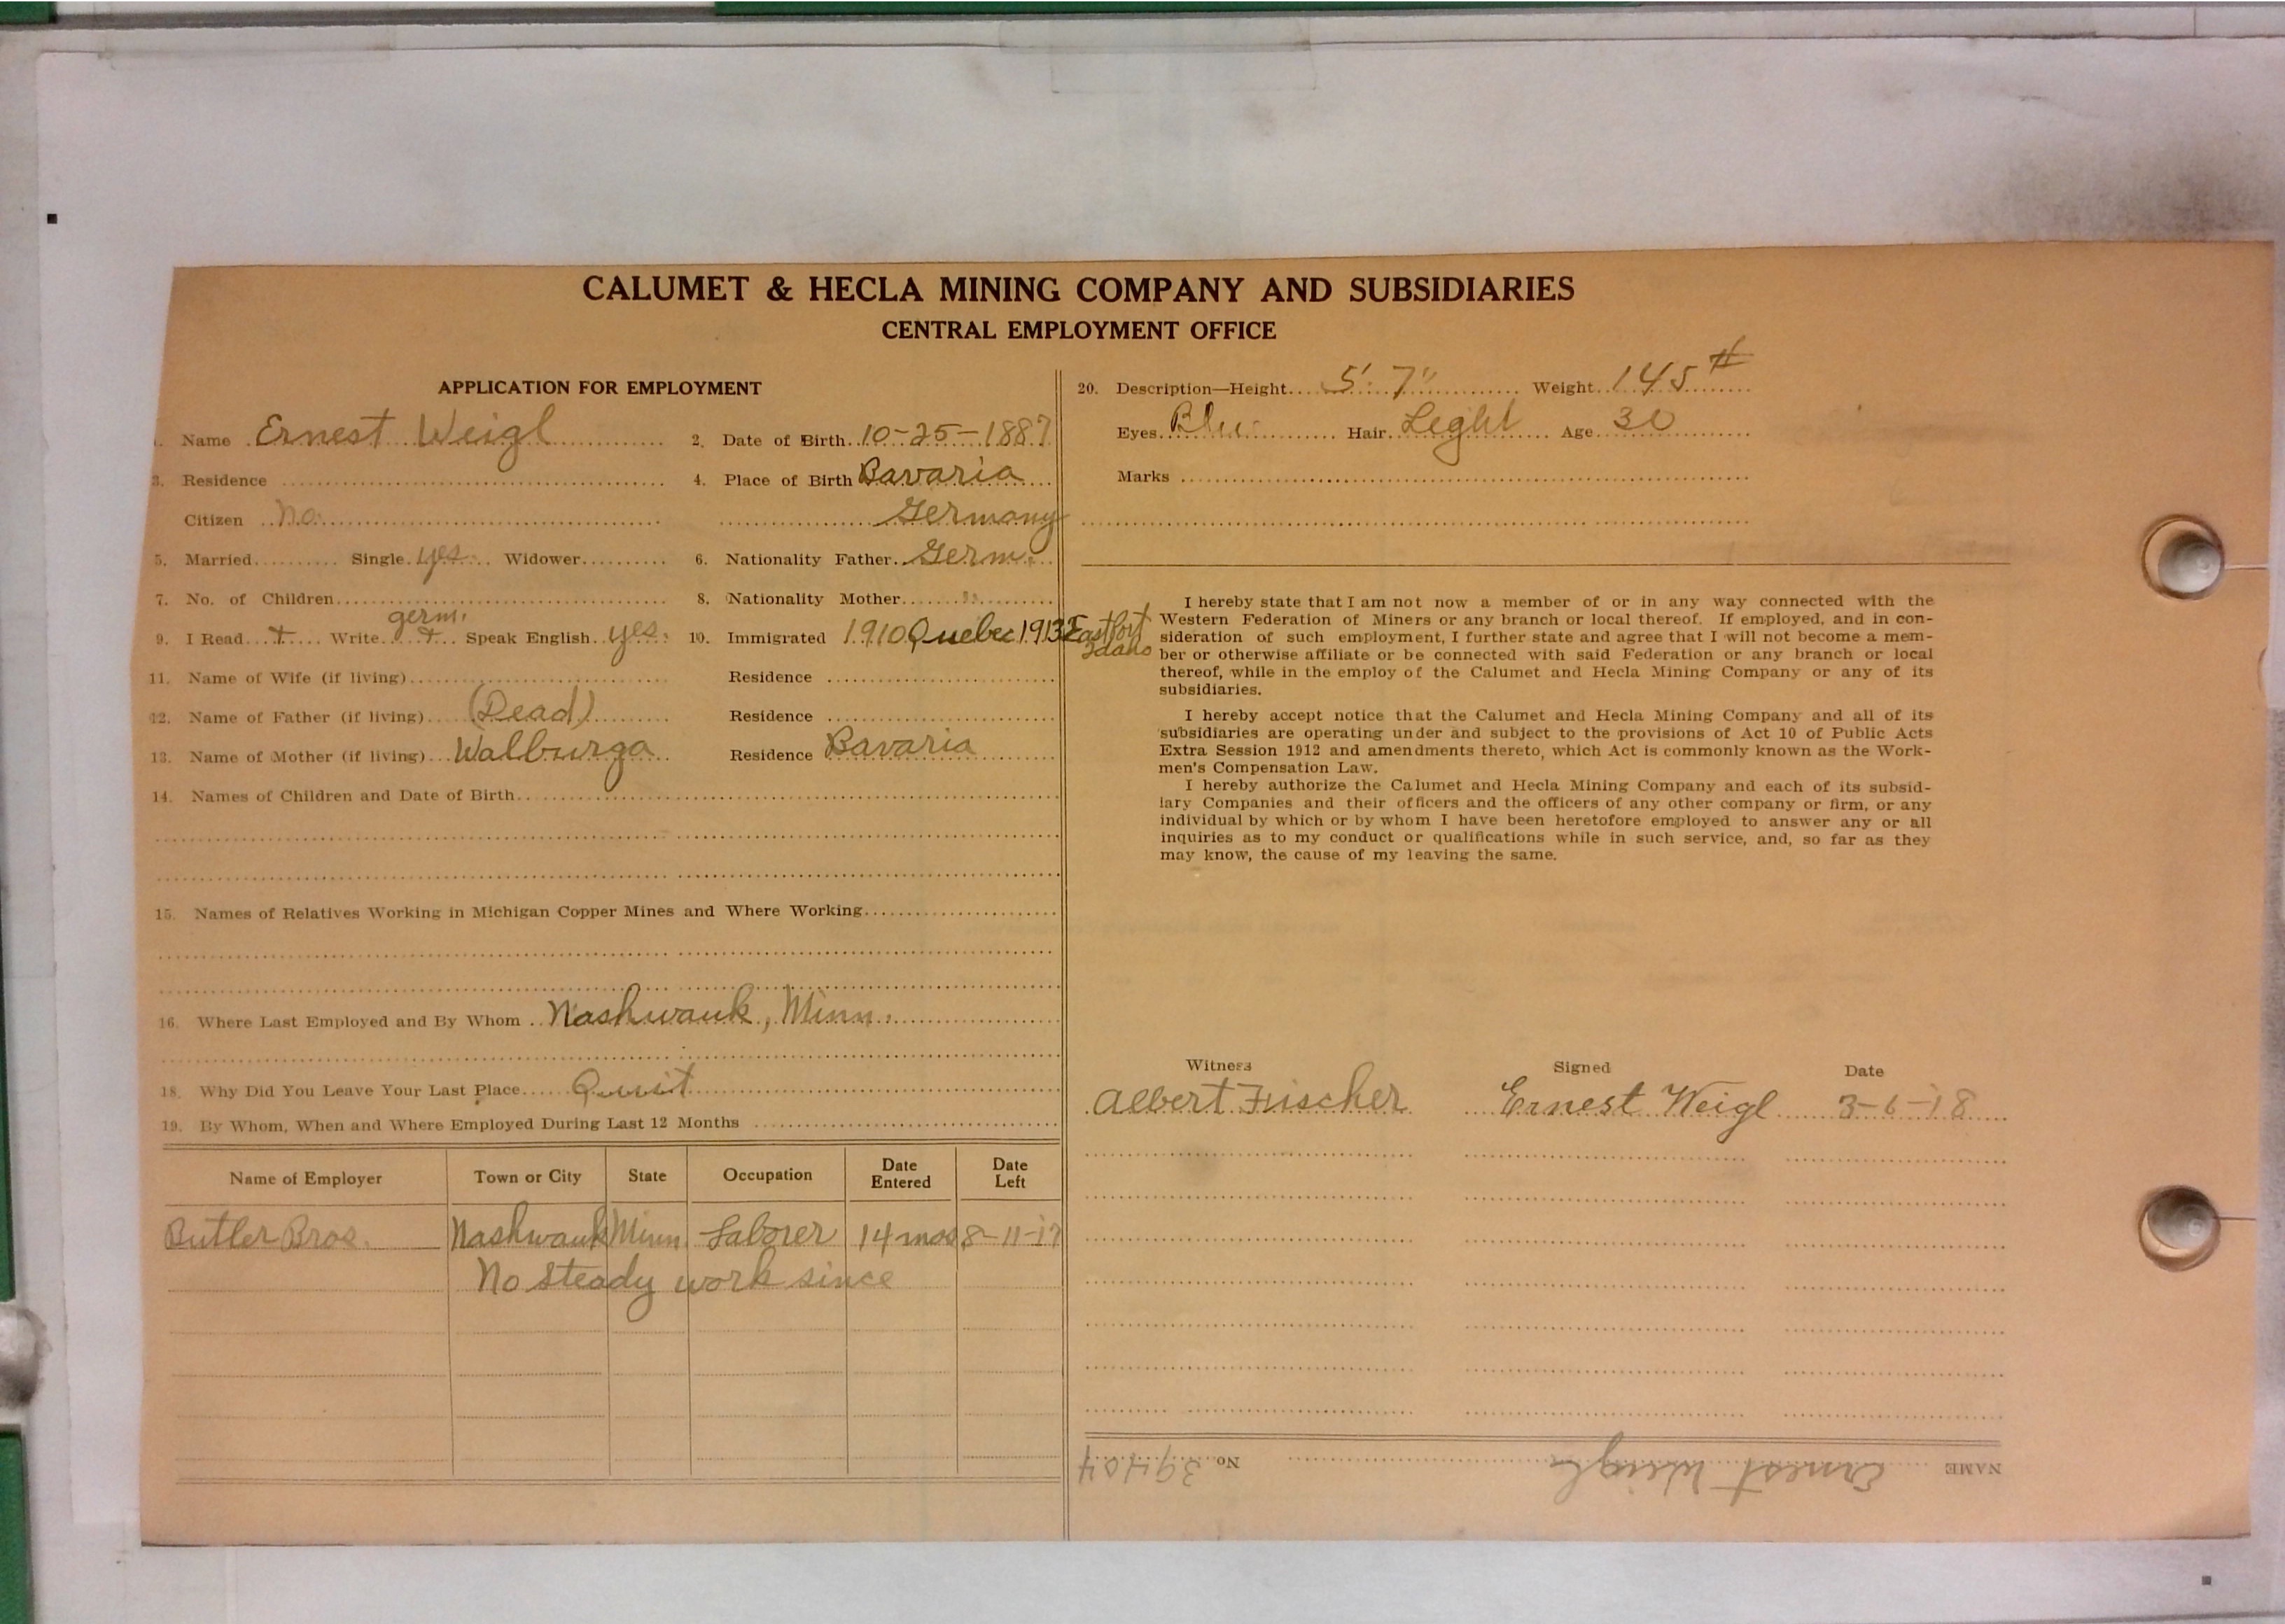 CALUMET & HECLA MINING COMPANY AND SUBSIDIARIES
CENTRAL EMPLOYMENT OFFICE
APPLICATION FOR EMPLOYMENT
Name Ernest Weigl 2. Date of Birth 10-25-1887
3. Residence 4. Place of Birth Bavaria
Citizen No. Germany
5. Married Single yes Widower 6. Nationality Father Germ.
7. No. of Children 8. Nationality Mother "
germ.
9. I Read + Write + Speak English yes. 10. Immigrated 1910 Quebec 1913 Eastport Idaho
11. Name of Wife (if living) Residence
12. Name of Father (if living) (Dead) Residence
13. Name of Mother (if living) Walburga Residence Bavaria
14. Names of Children and Date of Birth
15. Names of Relatives Working in Michigan Copper Mines and Where Working
16. Where Last Employed and By Whom Nashwauk, Minn.
18. Why Did You Leave Your Last Place Quit
19. By Whom, When and Where Employed During Last 12 Months
Name of Employer Town or City State Occupation Date Entered Date Left
Butler Bros. Nashwauk Minn. Laborer 14 mos 8-11-17
No steady work since
20. Description—Height 5' 7" Weight 145#
Eyes Blu Hair Leght Age 30
Marks
I hereby state that I am not now a member of or in any way connected with the
Western Federation of Miners or any branch or local thereof. If employed, and in con-
sideration of such employment, I further state and agree that I will not become a mem-
ber or otherwise affiliate or be connected with said Federation or any branch or local
thereof, while in the employ of the Calumet and Hecla Mining Company or any of its
subsidiaries.
I hereby accept notice that the Calumet and Hecla Mining Company and all of its
subsidiaries are operating under and subject to the provisions of Act 10 of Public Acts
Extra Session 1912 and amendments thereto, which Act is commonly known as the Work-
men's Compensation Law.
I hereby authorize the Calumet and Hecla Mining Company and each of its subsid-
iary Companies and their officers and the officers of any other company or firm, or any
individual by which or by whom I have been heretofore employed to answer any or all
inquiries as to my conduct or qualifications while in such service, and, so far as they
may know, the cause of my leaving the same.
Witness Signed Date
Albert Fischer Ernest Weigl 3-6-18
NAME Ernest Weigl No. 39404